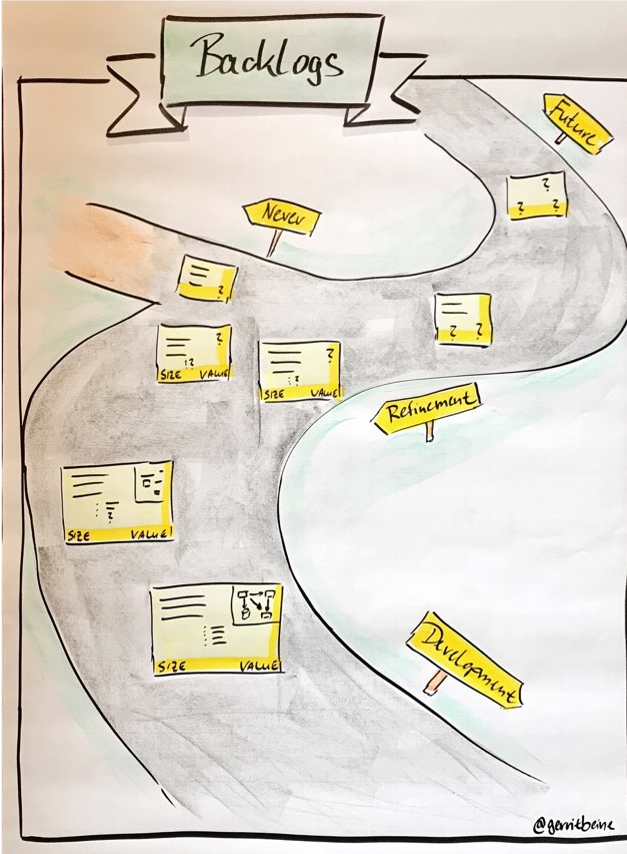 Backlogs
Future
? 
? ?
Never
?
?
? ?
?
!?
SIZE VALUE
?
!?
SIZE VALUE
Refinement
?
SIZE VALUE!
SIZE VALUE
Development
@gerritbeine